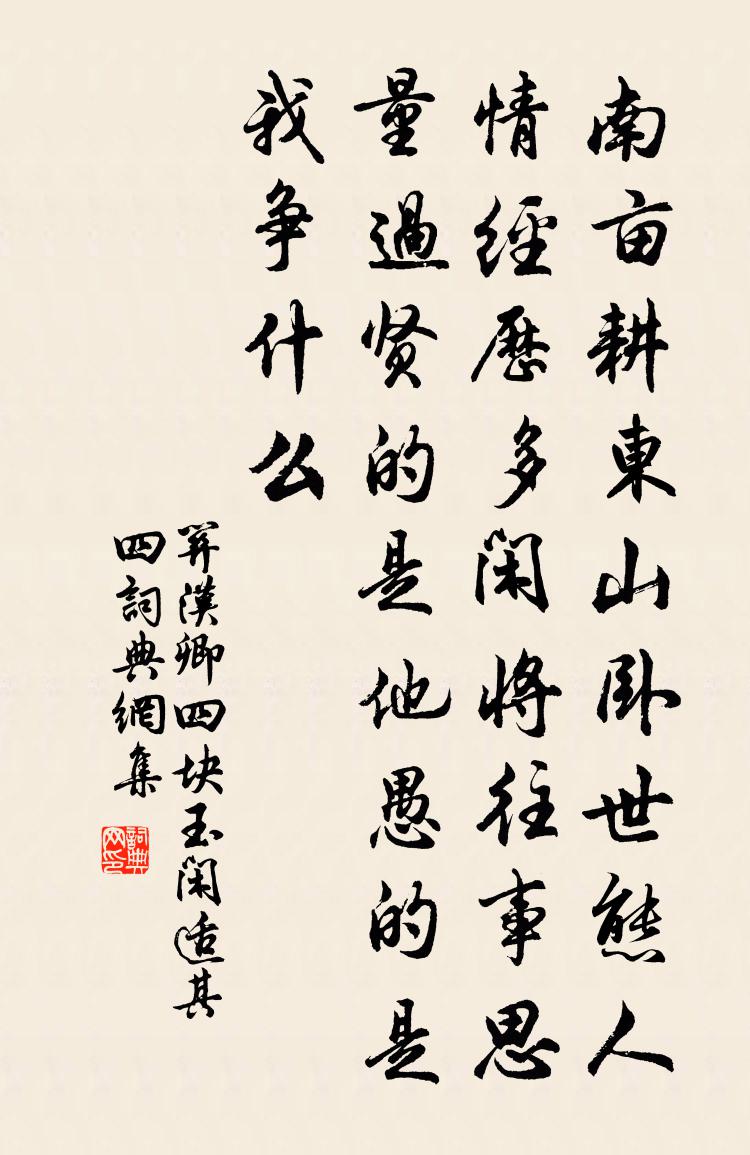 南亩耕東山卧世態人
情經歷多閑將往事思
量過贤的是他愚的是
我争什么
關漢卿四块玉閑适其
四詞典網集
詞典
网印